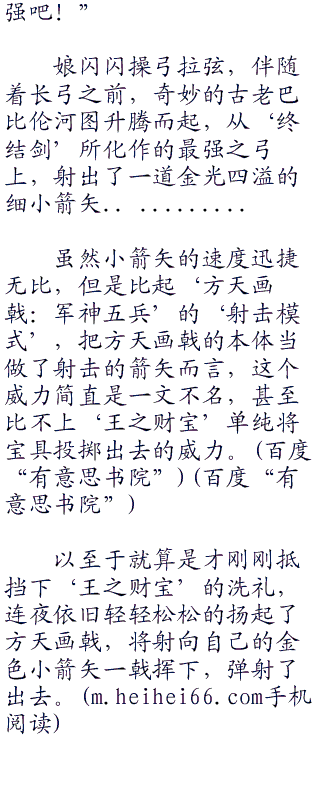 强吧！”
娘闪闪操弓拉弦，伴随
着长弓之前，奇妙的古老巴
比伦河图升腾而起，从‘终
结剑’所化作的最强之弓
上，射出了一道金光四溢的
细小箭矢.. ..........
虽然小箭矢的速度迅捷
无比，但是比起‘方天画
戟：军神五兵’的‘射击模
式’，把方天画戟的本体当
做了射击的箭矢而言，这个
威力简直是一文不名，甚至
比不上‘王之财宝’单纯将
宝具投掷出去的威力。(百度
“有意思书院”)(百度“有
意思书院”)
以至于就算是才刚刚抵
挡下‘王之财宝’的洗礼，
连夜依旧轻轻松松的扬起了
方天画戟，将射向自己的金
色小箭矢一戟挥下，弹射了
出去。(m.heihei66.com手机
阅读)